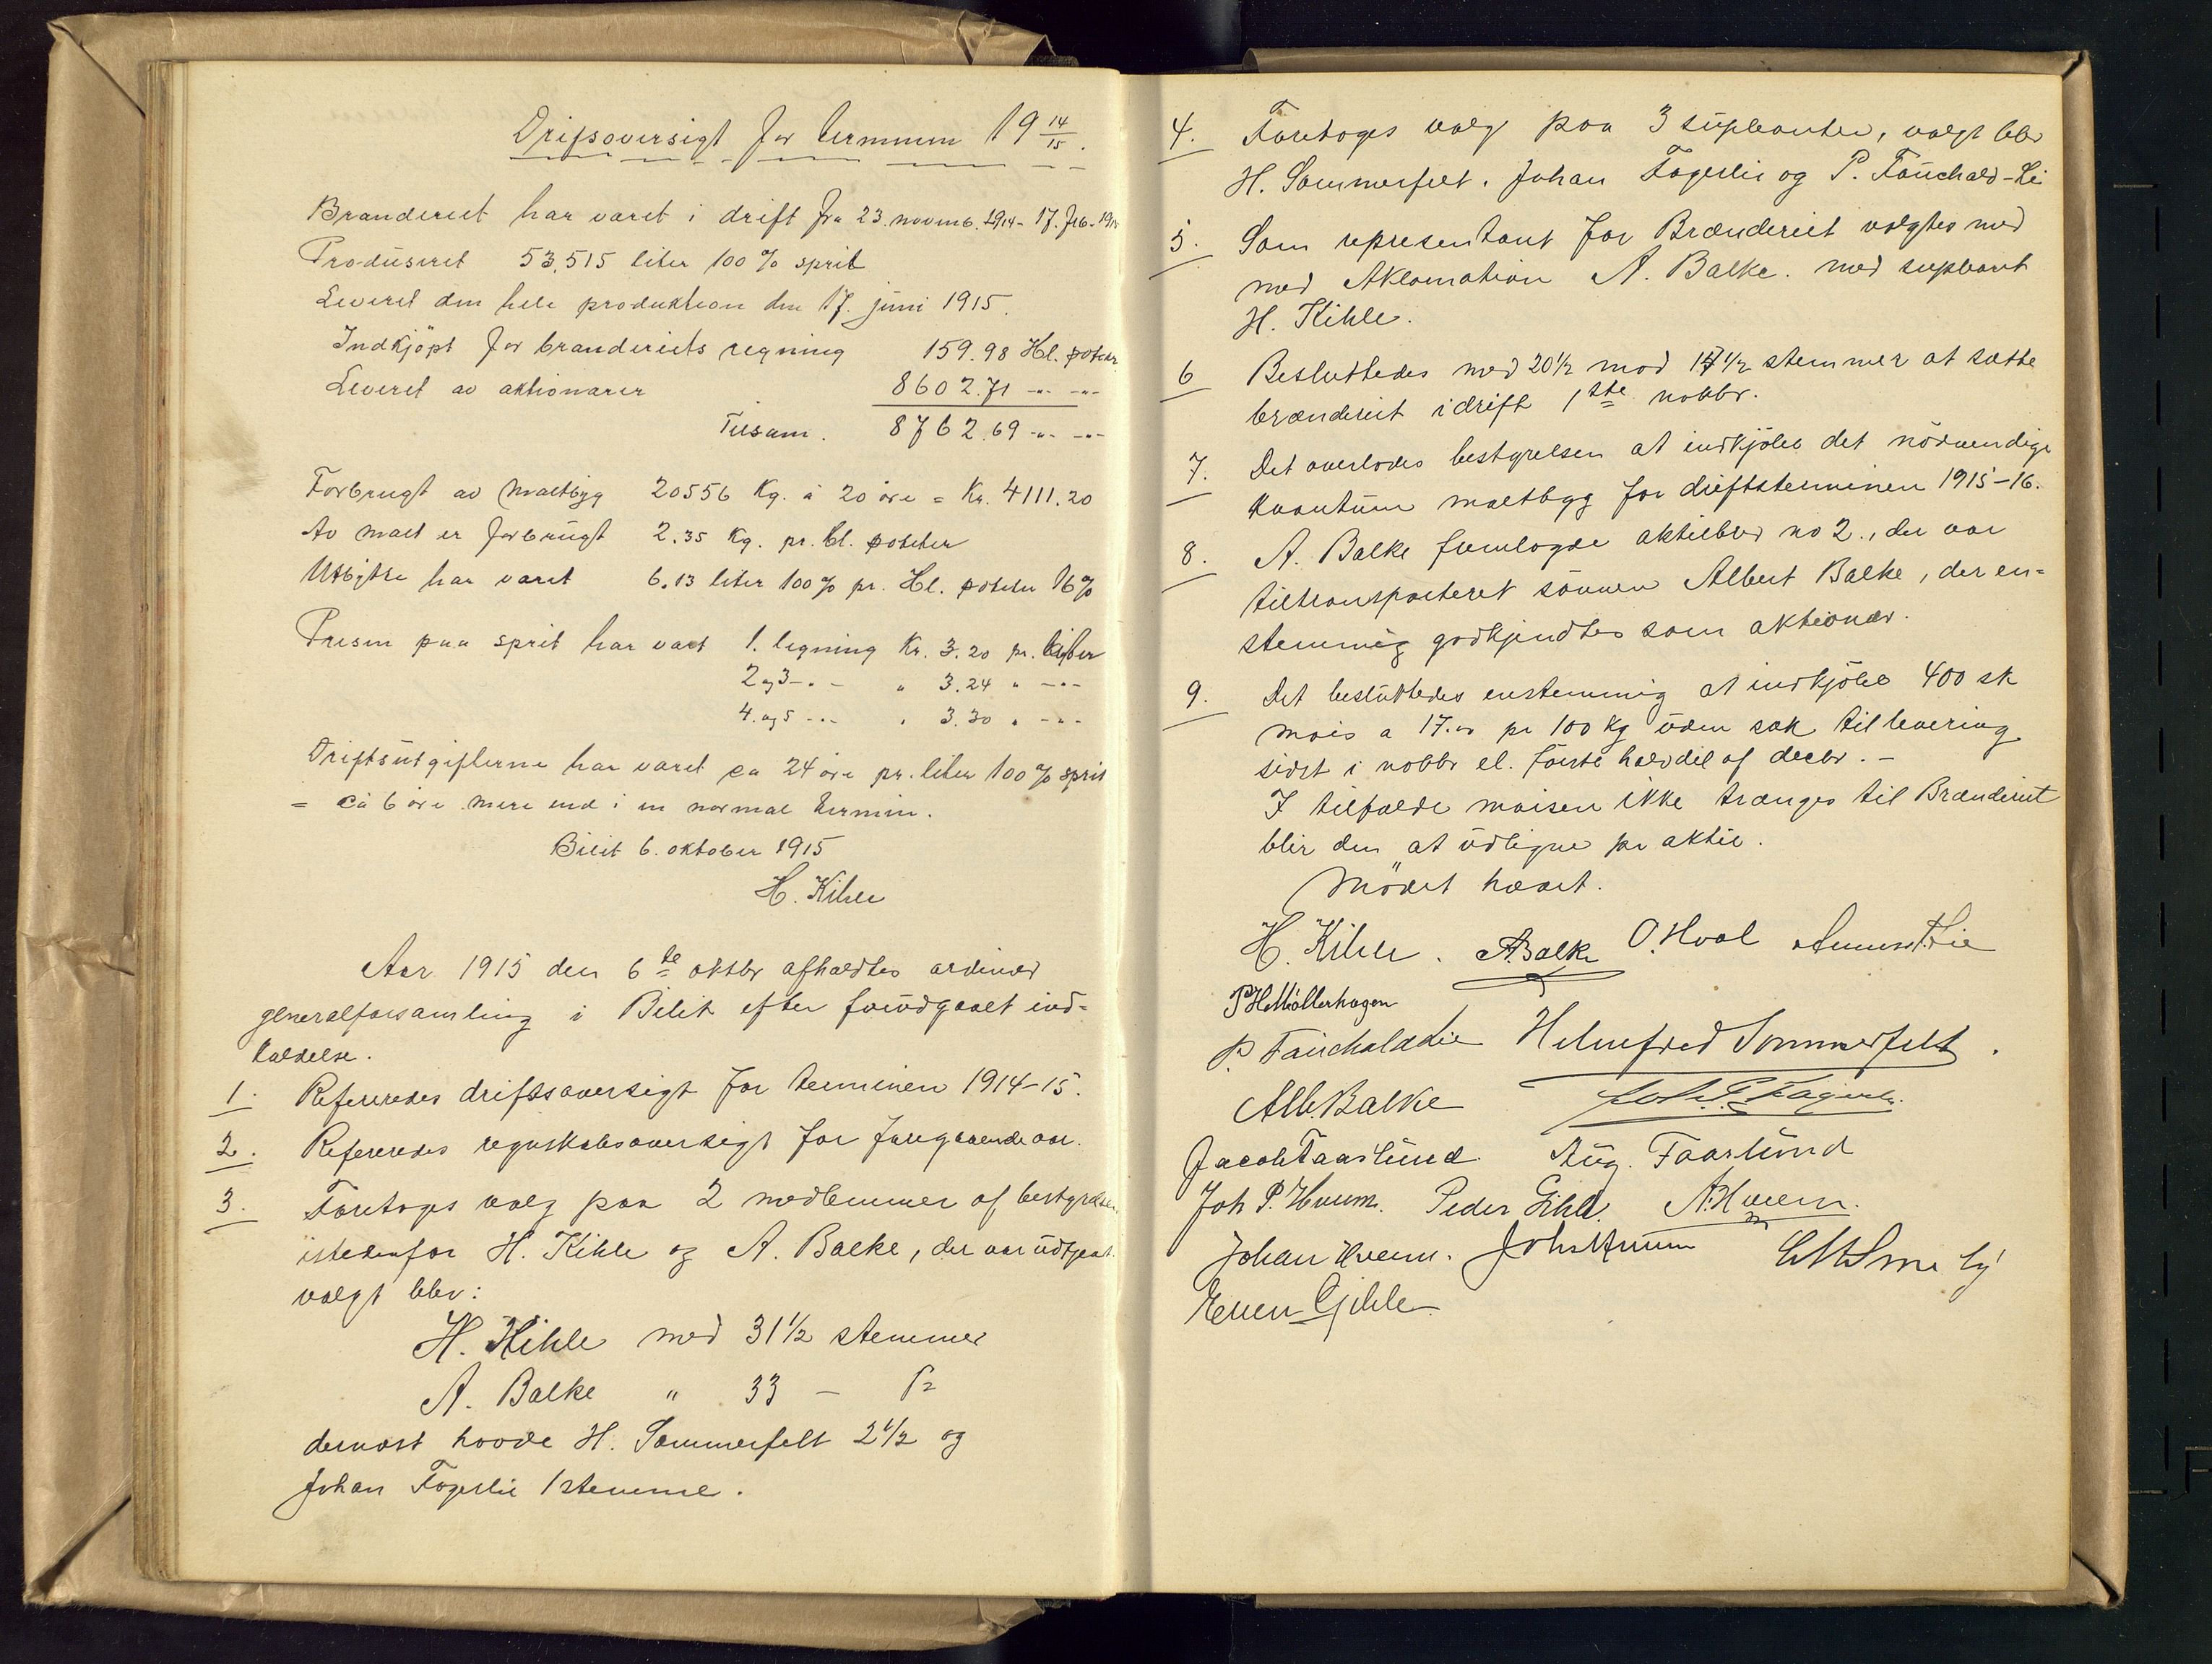 Drifsoversigt for terminen 19 14/15.
Brænderiet har været i drift fra 23. novmb. 1914 - 17. feb. 1915
Produseret 53,515 liter 100 % sprit
Leveret den hele produktion den 17. juni 1915.
Indkjöpt for brænderiets regning 159.98 Hl. poteter
Leveret av aktionærer 8602.71 -"- -"-
Tilsam. 8762.69 -"- -"-
Forbrugt av maltbyg 20556 Kg. á 20 öre = Kr. 4111.20
Av malt er forbrugt 2.35 Kg. pr. hl. poteter
Utbytte har været 6.13 liter 100 % pr. Hl. poteter 16 %
Prisen paa sprit har vært 1. ligning Kr. 3.20 pr. liter
2 og 3 -"- " 3.24 " -"-
4. og 5 -"- " 3.30 " -"-
Driftsutgifterne har været ca 24 öre pr. liter 100 % sprit
= ca 6 öre mere end i en normal termin.
Bilit 6. oktober 1915
H. Kihle
Aar 1915 den 6te oktbr afholdtes ordinær
generalforsamling i Bilit efter forudgaaet ind-
kaldelse.
1. Refereredes driftsoversigt for terminen 1914-15.
2. Refereredes regnskabsoversigt for foregaaende aar.
3. Foretoges valg paa 2 medlemmer af bestyrelsen
istedenfor H. Kihle og A. Balke, der var udtraadt
valgt blev:
H. Kihle med 31 1/2 stemmer
A. Balke " 33 -
dernæst havde H. Sommerfelt 2 1/2 og
Johan Fagerlie 1 stemme.
4. Foretoges valg paa 3 supleanter, valgt blev
H. Sommerfelt. Johan Fagerlie og P. Fauchald-Li
5. Som representant for Brænderiet valgtes med
med Aklamation A. Balke. med supleant
H. Kihle.
6 Besluttedes med 20 1/2 mod 17 1/2 stemmer at sætte
brænderiet i drift 1ste novbr.
7. Det overlodes bestyrelsen at indkjöbe det nödvendige
kvantum maltbyg for driftsterminen 1915-16.
8. A. Balke fremlagde aktiebrev no 2., der var
tiltransporteret sönnen Albert Balke, der en-
stemmig godkjendtes som aktionær.
9. Det besluttedes enstemmig at indkjöbe 400 sk
mais a 17.00 pr 100 Kg uden sæk til levering
sidst i novbr el. förste halvdel af decbr. -
I tilfælde maisen ikke trænges til Brænderiet
blir den at udligne pr aktie.
Mödet hævet.
H. Kihle. A. Balke O. Hval Lie
P H Möllerhagen
P. Fauchald Lie Helmfred Sommerfelt.
Alb. Balke Joh. Fagerli.
Jacob Faarlund. Aug. Faarlund
Joh P. Hveem. Peder Gihle. A. Hveem.
Johan Hveem. Joh.
Even Gihle